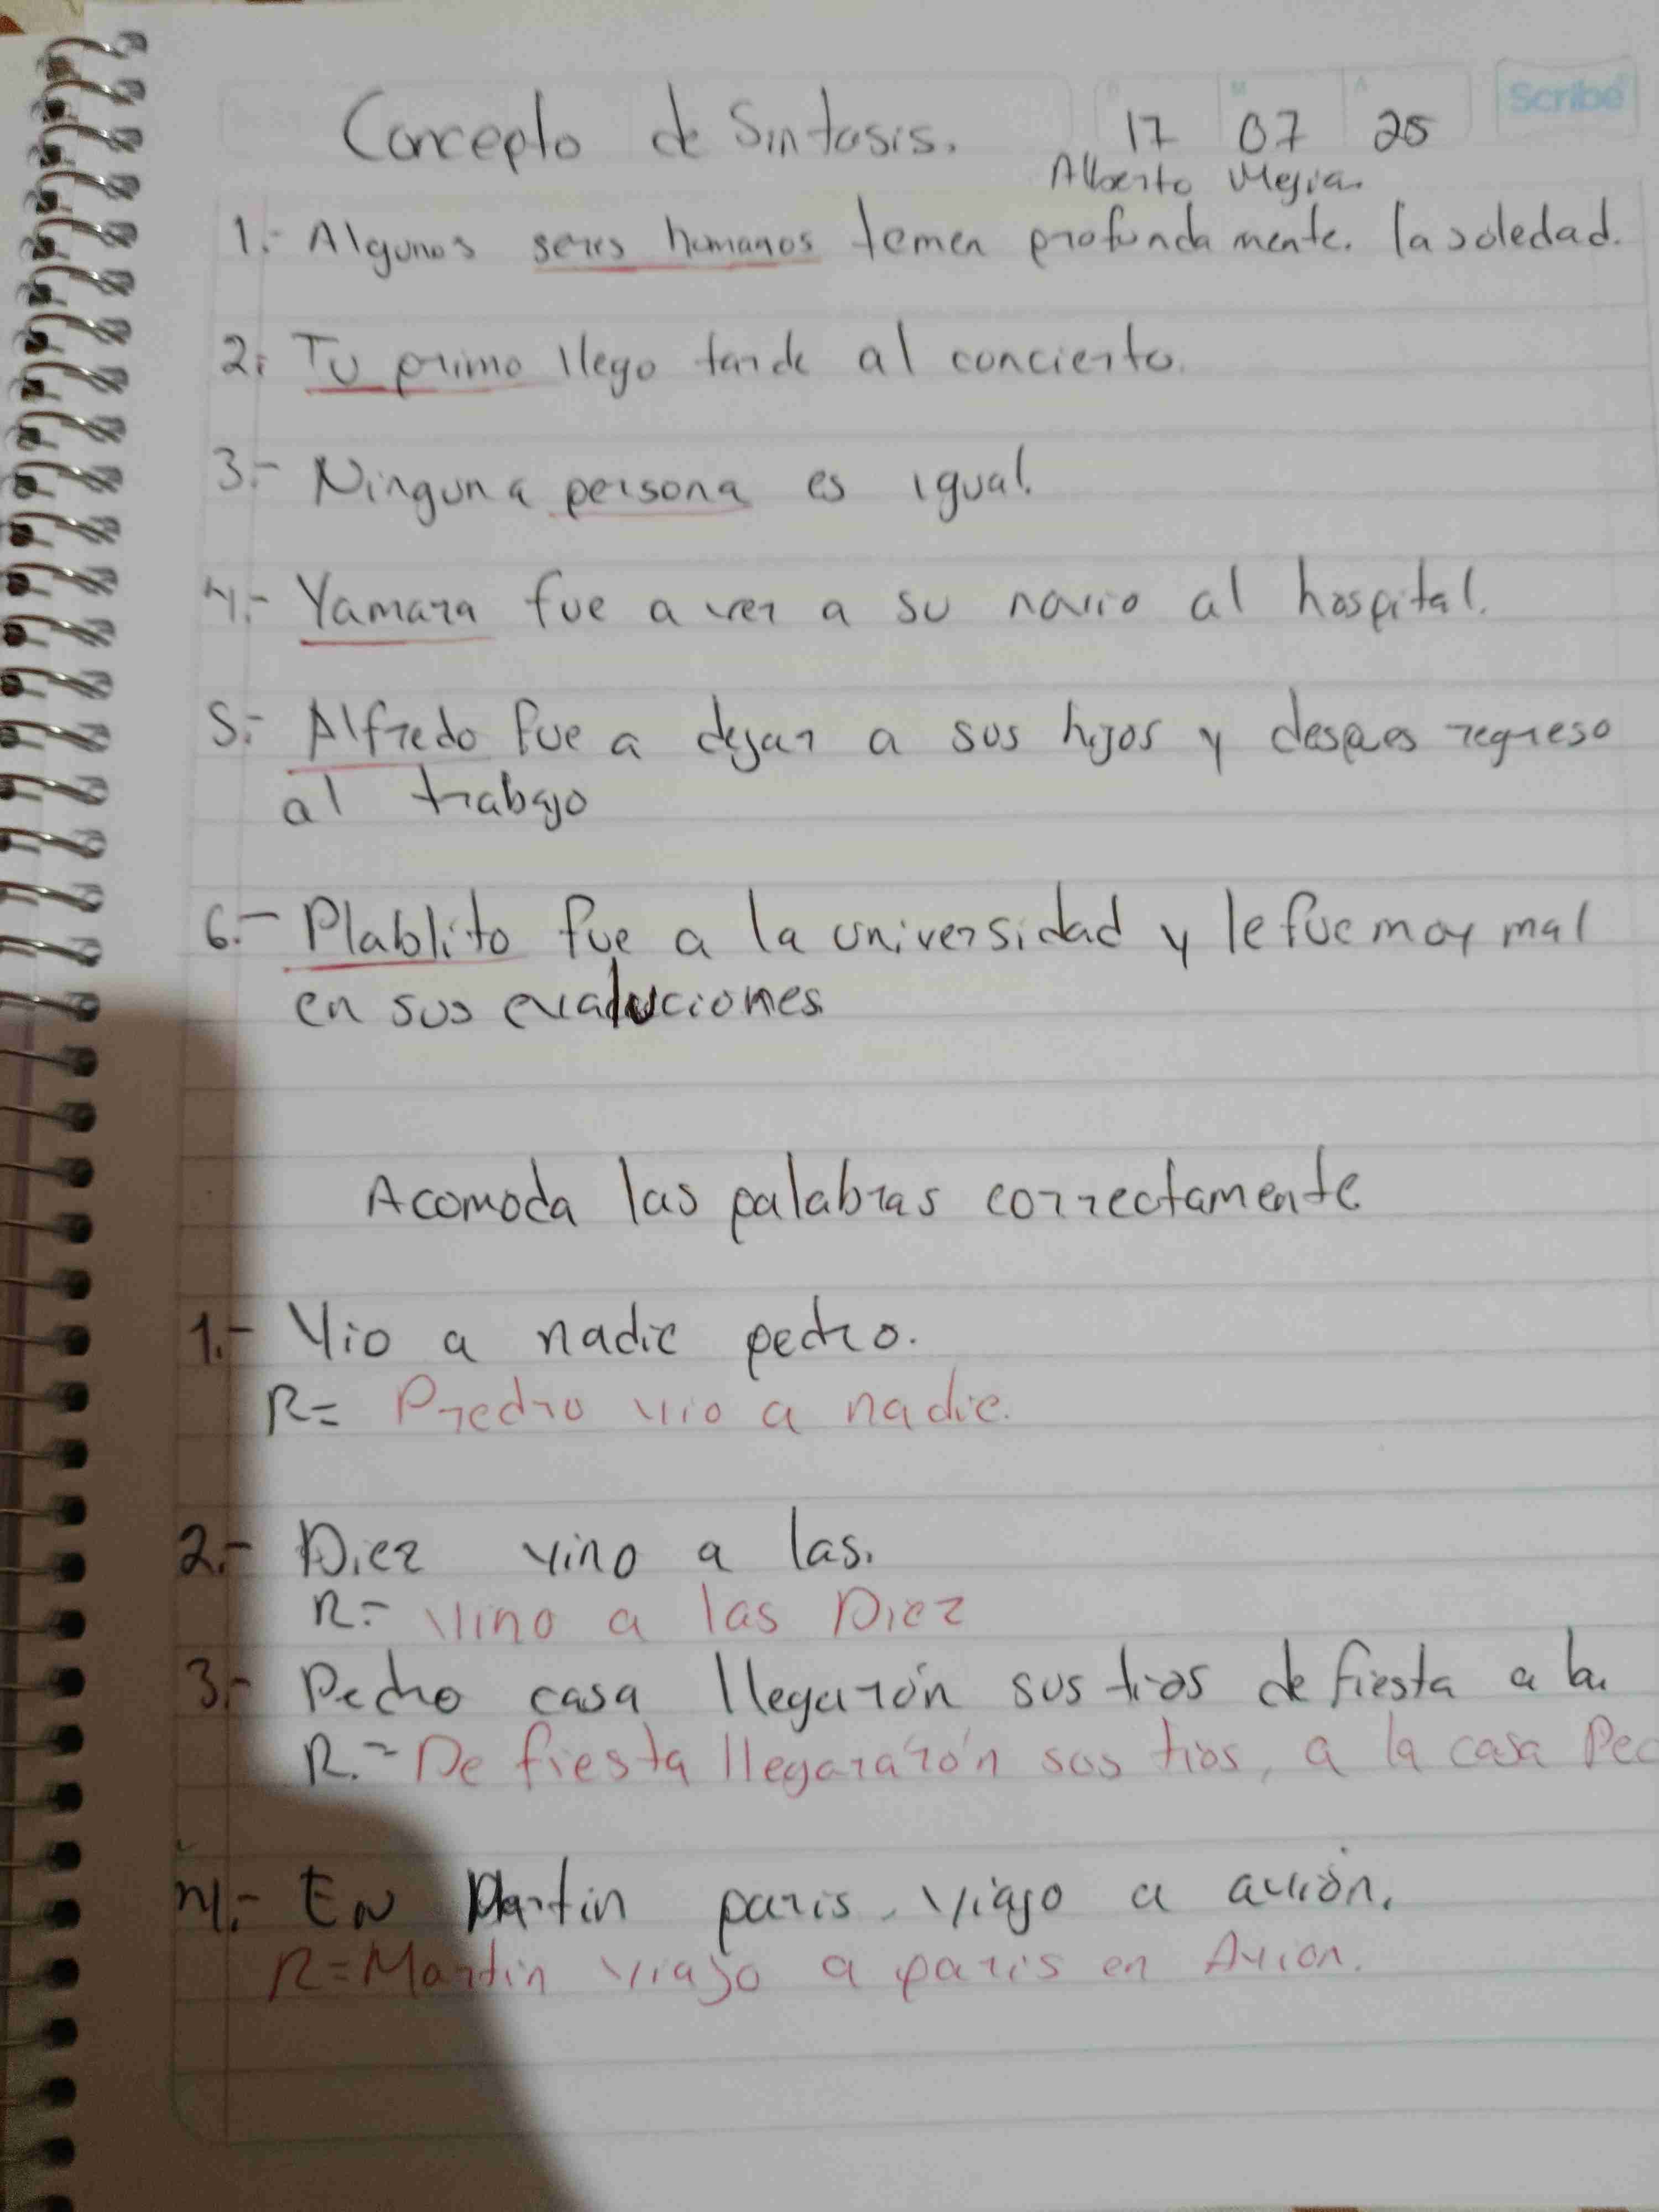 Concepto de Sintasis. 17 07 25 Scribe
Alberto Mejia.
1.- Algunos seres humanos temen profundamente. la soledad.
2: Tu primo llego tarde al concierto.
3.- Ninguna persona es igual.
4.- Yamara fue a ver a su novio al hospital.
5.- Alfredo fue a dejar a sus hijos y despues regreso
al trabajo
6.- Plablito fue a la universidad y le fue muy mal
en sus evaluciones
Acomoda las palabras correctamente.
1.- Vio a nadie pedro.
R= Predro vio a nadie.
2.- Diez vino a las.
R= Vino a las Diez
3.- Pedro casa llegarón sus tios de fiesta a la.
R.= De fiesta llegararón sus tios, a la casa Pec
4.- En Martin paris viajo a avión.
R=Martin viajo a paris en Avion.